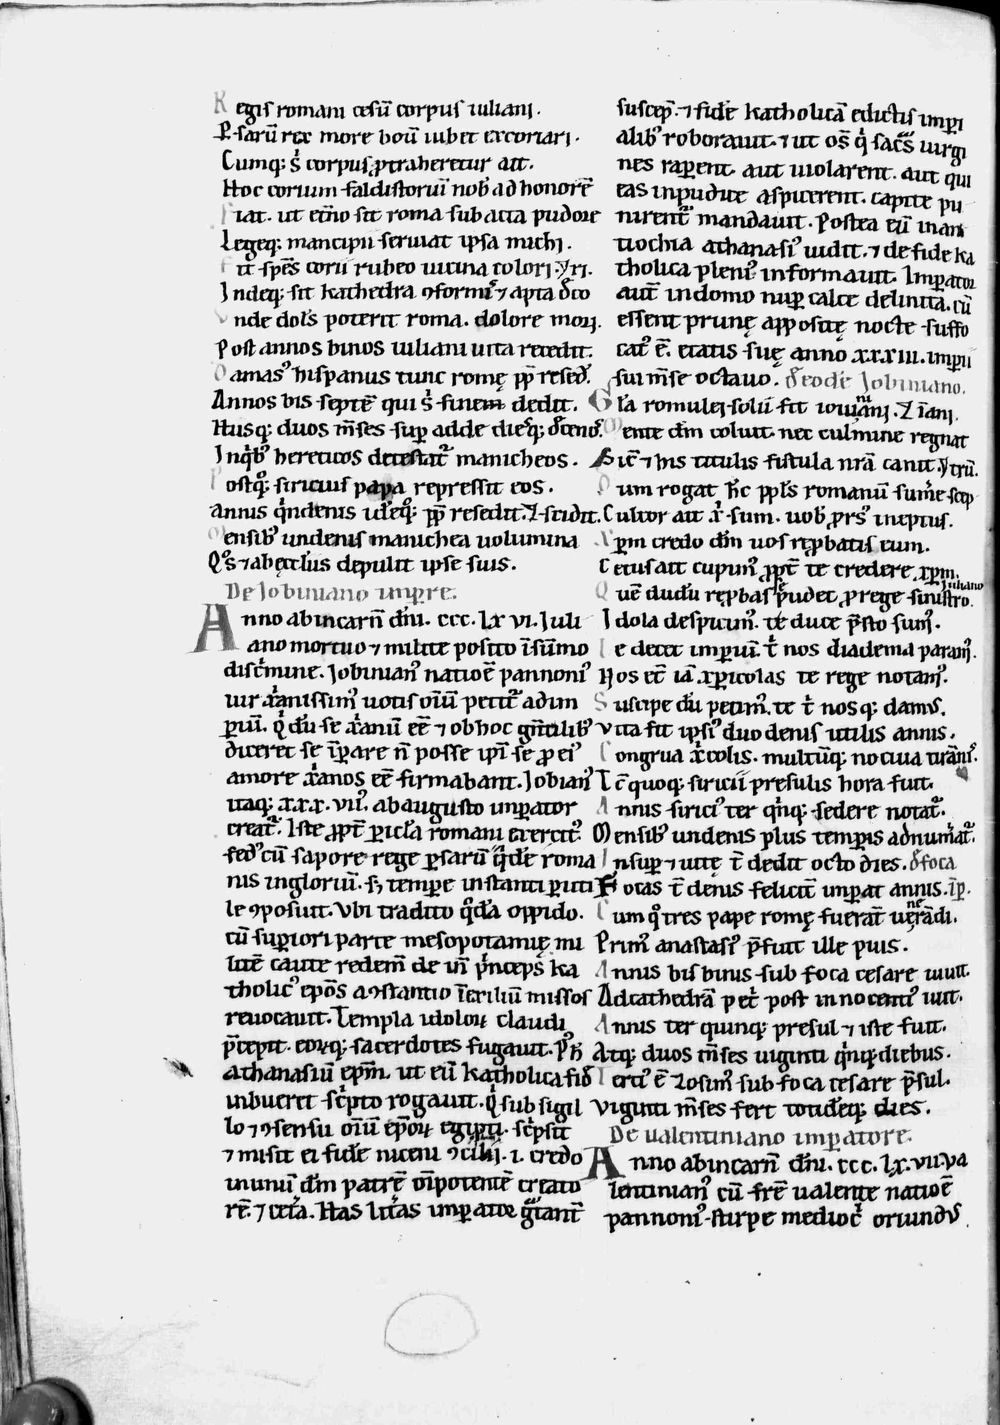 Regis romani cesū corpus iuliani.
Ꝑsarū rex more boum iubet excoriari.
Cumq; s̄ corpus ꝓtraheretur ait.
Hoc corium faldistoriū nob̄ ad honorē
Fiat. ut etn̄o sit roma subacta pudore
Legeq; mancipii seruiat ipsa michi.
Fit spēs corii rubeo uicina colori. yri.
Indeq; sit kathedra ꝯformis ⁊ apta d̄co
Unde dol's poterit roma. dolore mori.
Post annos binos iuliani uita recedit.
Damasꝰ hispanus tunc romę pp̄ resed̄.
Annos bis septē qui s̄ finem dedit.
Husq; duos m̄ses suꝑ adde diesq; d̄cenoꝰ.
Inqͥbꝰ hereticos detestatᷣ manicheos.
Postqͦꝫ siricius papa repressit eos.
Annis qͥndenis ideqͦꝫ pp̄ resedit. ⁊ scidit.
Mensibꝰ undenis manichea uolumina
Qͦs ⁊ abęctłus depulit ipse suis.
De Iobiniano imꝑre.
Anno ab incarn̄ dn̄i. ccc. lx vi. Iuli
ano mortuo ⁊ milite posito ī sūmo
discͥmine. Iobinianꝰ natiōe pannoniꝰ
uir xͥanissimꝰ uotis oīū petitᷣ ad im
ꝑiū. qͥ dū se xͥanū eē ⁊ ob hoc gn̄tilibꝰ
diceret se īꝑare n̄ posse ipi se ꝓ eiꝰ
amore xͥanos eē firmabant. Iobianꝰ
itaq; xxx. viiꝰ. ab augusto imꝑator
creatᷣ. Iste ꝓpt̄ ꝑicła romani exercitꝰ
fedꝰ cū sapore rege ꝑsarū qͥdē roma
nis ingloriū. sꝫ tempe instanti ꝑuti
le ꝯposuit. Vbi tradito qͦda oppido.
cū suꝑiori parte mesopotamię mi
litē caute redem̄ de in̄ pͥnceps ka
tholicꝰ epōs a ꝯstantio ī exiliū missos
reuocauit. Templa idoloꝝ claudi
p̄cepit. eoꝝq; sacerdotes fugauit. Pꝰ h̄
athanasiū epm̄. ut eū katholica fid̄
inbueret sc̄pto rogauit. qͥ sub sigil
lo ⁊ ꝯsensu oīū ep̄oꝝ egipti. sc̄psit
⁊ misit ei fidē niceni ꝯcilii. i. credo
in unū dm̄ patrē oīpotentē creato
rē. ⁊ cetͣa. Has litͣas imꝑator gͣtant̄
suscep. ⁊ fidē katholicā edictis imꝑi
alibꝰ roborauit. ⁊ ut oēs qͥ sacͣs uirgi
nes raꝑent. aut uiolarent. aut qui
eas inpudice aspicerent. capite pu
nirentᷣ mandauit. Postea eū in an
tiochia athanasiꝰ uidit. ⁊ de fide ka
tholica pleniꝰ informauit. Imꝑator
autē in domo nuꝑ calce delinita. cū
essent prunę appositę nocte suffo
catꝰ ē. etatis suę anno xxxiii. imꝑii
sui m̄se octauo. d̄ eodē Iobiniano.
Gła romulei solii fit iouiniani. ⁊ īani.
Mente dm̄ coluit. nec culmine regnat
Sic̄ ⁊ his titulis fistula nrā canit. ytrū.
Dum rogat hc̄ ppl's romanū sumͤe scep
Cultor ait xͥ sum. uob̄ prsꝰ ineptus.
Xꝑm credo dm̄ uos rep̄batis eum.
Cetus ait cupimꝰ ꝓpt̄ te credere xꝑm.
Quē dudū rep̄bas p̄udet ꝓ rege sinistro. Iuliano
Idola despicimꝰ. te duce p̄sto sumꝰ.
Te decet imꝑiū. t̄ nos diadema paramꝰ.
Nos eē iā xꝑicolas te rege notamꝰ.
Suscipe dū petimꝰ. te t̄ nosq; damꝰ.
Vita fit ipsiꝰ duodenis utilis annis.
Congrua xͥcolis. multūq; nociua tirānis.
Tc̄ quoq; siricii presulis hora fuit.
Annis siriciꝰ ter qͥnq; sedere notatᷣ.
Mensibꝰ undenis plus tempis adnumͤatᷣ.
Insuꝑ ⁊ uitę t̄ dedit octo dies. d̄ foca
Focas t̄ denis felicit̄ imperat annis. īꝑ.
Cum qͦ tres pape romę fuerāt ueneradi.
Primꝰ anastasiꝰ p̄fuit ille puis.
Annis bis binis sub foca cesare uiuit.
Ad cathedrā petͥ post innocentiꝰ iuit.
Annis ter quinq; presul ⁊ iste fuit.
Atq; duos m̄ses uiginti qͥnq; diebus.
Terciꝰ ē zosimꝰ sub foca cesare p̄sul.
Viginti m̄ses fert totideq; dies.
De ualentiniano imꝑatore.
Anno ab incarn̄ dn̄i. ccc. lx. vii. va
lentinianꝰ cū fr̄e ualente natiōe
pannoniꝰ stirpe mediocͥ oriundꝰ.